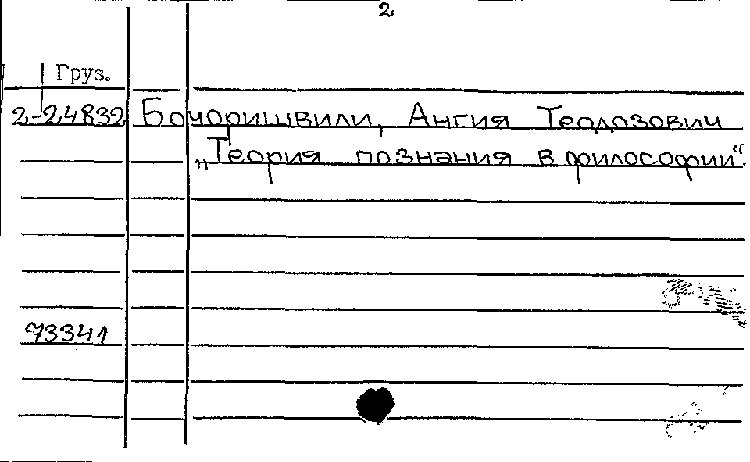 2
Груз.
2-24832 Бочоришвили, Ангия Теодозович
„Теория познания в философии“.
73341